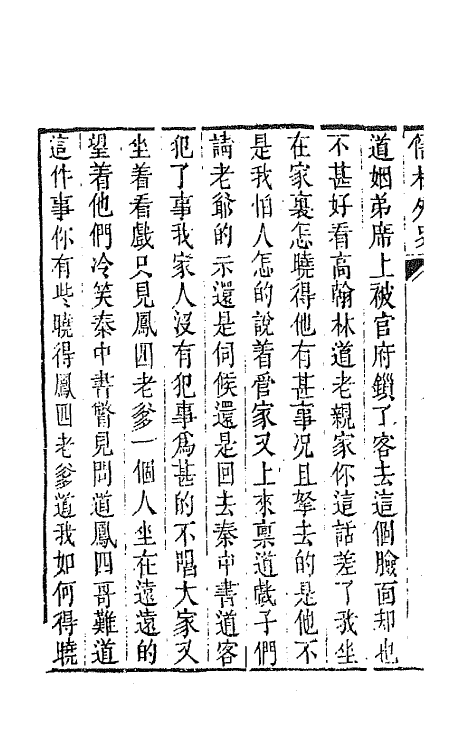 儒林外史
道姻弟席上被官府鎖了客去這個臉面却也
不甚好看高翰林道老親家你這話差了我坐
在家裏怎曉得他有甚事况且拏去的是他不
是我怕人怎的說着管家又上來禀道戲子們
請老爺的示還是伺候還是回去秦中書道客
犯了事我家人沒有犯事爲甚的不唱大家又
坐着看戲只見鳳四老爹一個人坐在遠遠的
望着他們冷笑秦中書瞥見問道鳳四哥難道
這件事你有些曉得鳳四老爹道我如何得曉